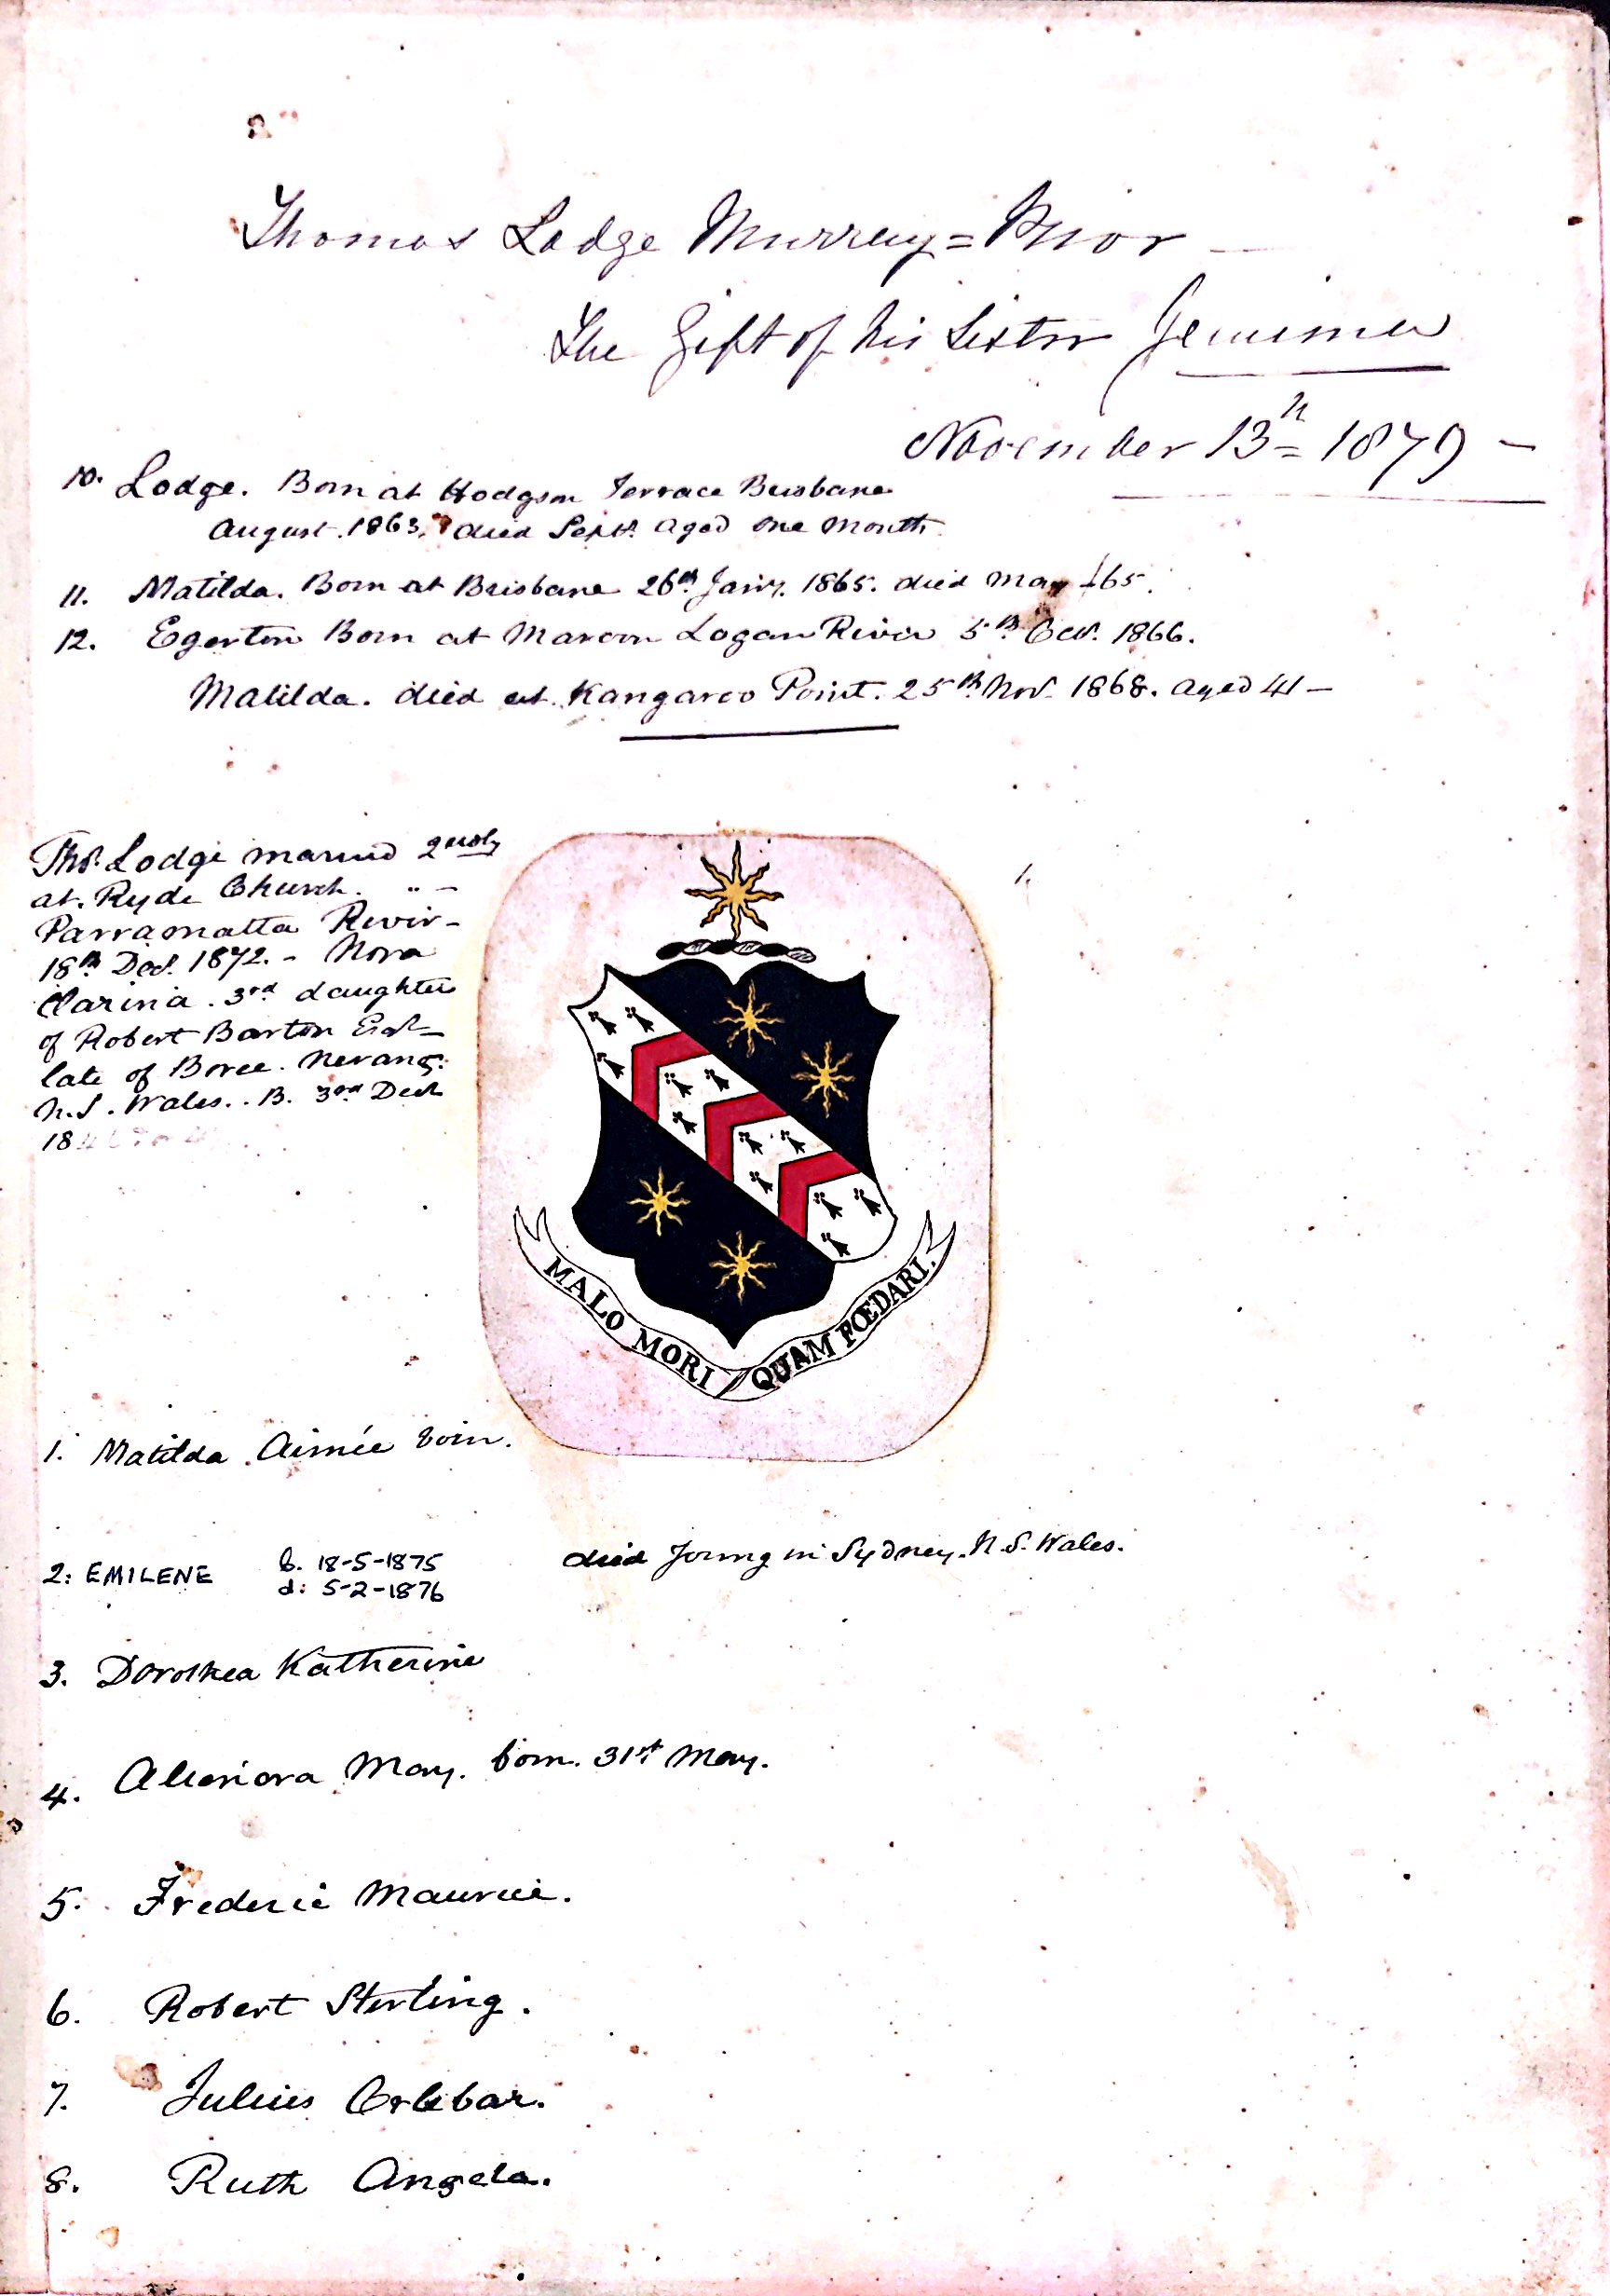 Thomas Lodge Murray=Prior —
The Gift of his Sister Jemima
November 13th 1879 —
10. Lodge. Born at Hodgson Terrace Brisbane
August. 1863. died Sept. aged one month.
11. Matilda. Born at Brisbane 26th Jany. 1865. died May 65.
12. Egerton Born at Maroon Logan River 5th Oct. 1866.
Matilda. died at Kangaroo Point. 25th Nov. 1868. aged 41 —
Thos. Lodge married 2ndly
at Ryde Church. " —
Parramatta River —
18th Dec. 1872. - Nora
Clarina. 3rd daughter
of Robert Barton Esq.
late of Boree. Nerang.
N.S. Wales. . B. 3rd Dec
18
MALO MORI QUAM FŒDARI.
1. Matilda Aimée born.
2: EMILENE b. 18-5-1875 died Young in Sydney. N.S. Wales.
d: 5-2-1876
3. Dorothea Katherine
4. Alienora May. born. 31st May.
5. Frederic Maurice.
6. Robert Sterling.
7. Julius Orlebar.
8. Ruth Angela.